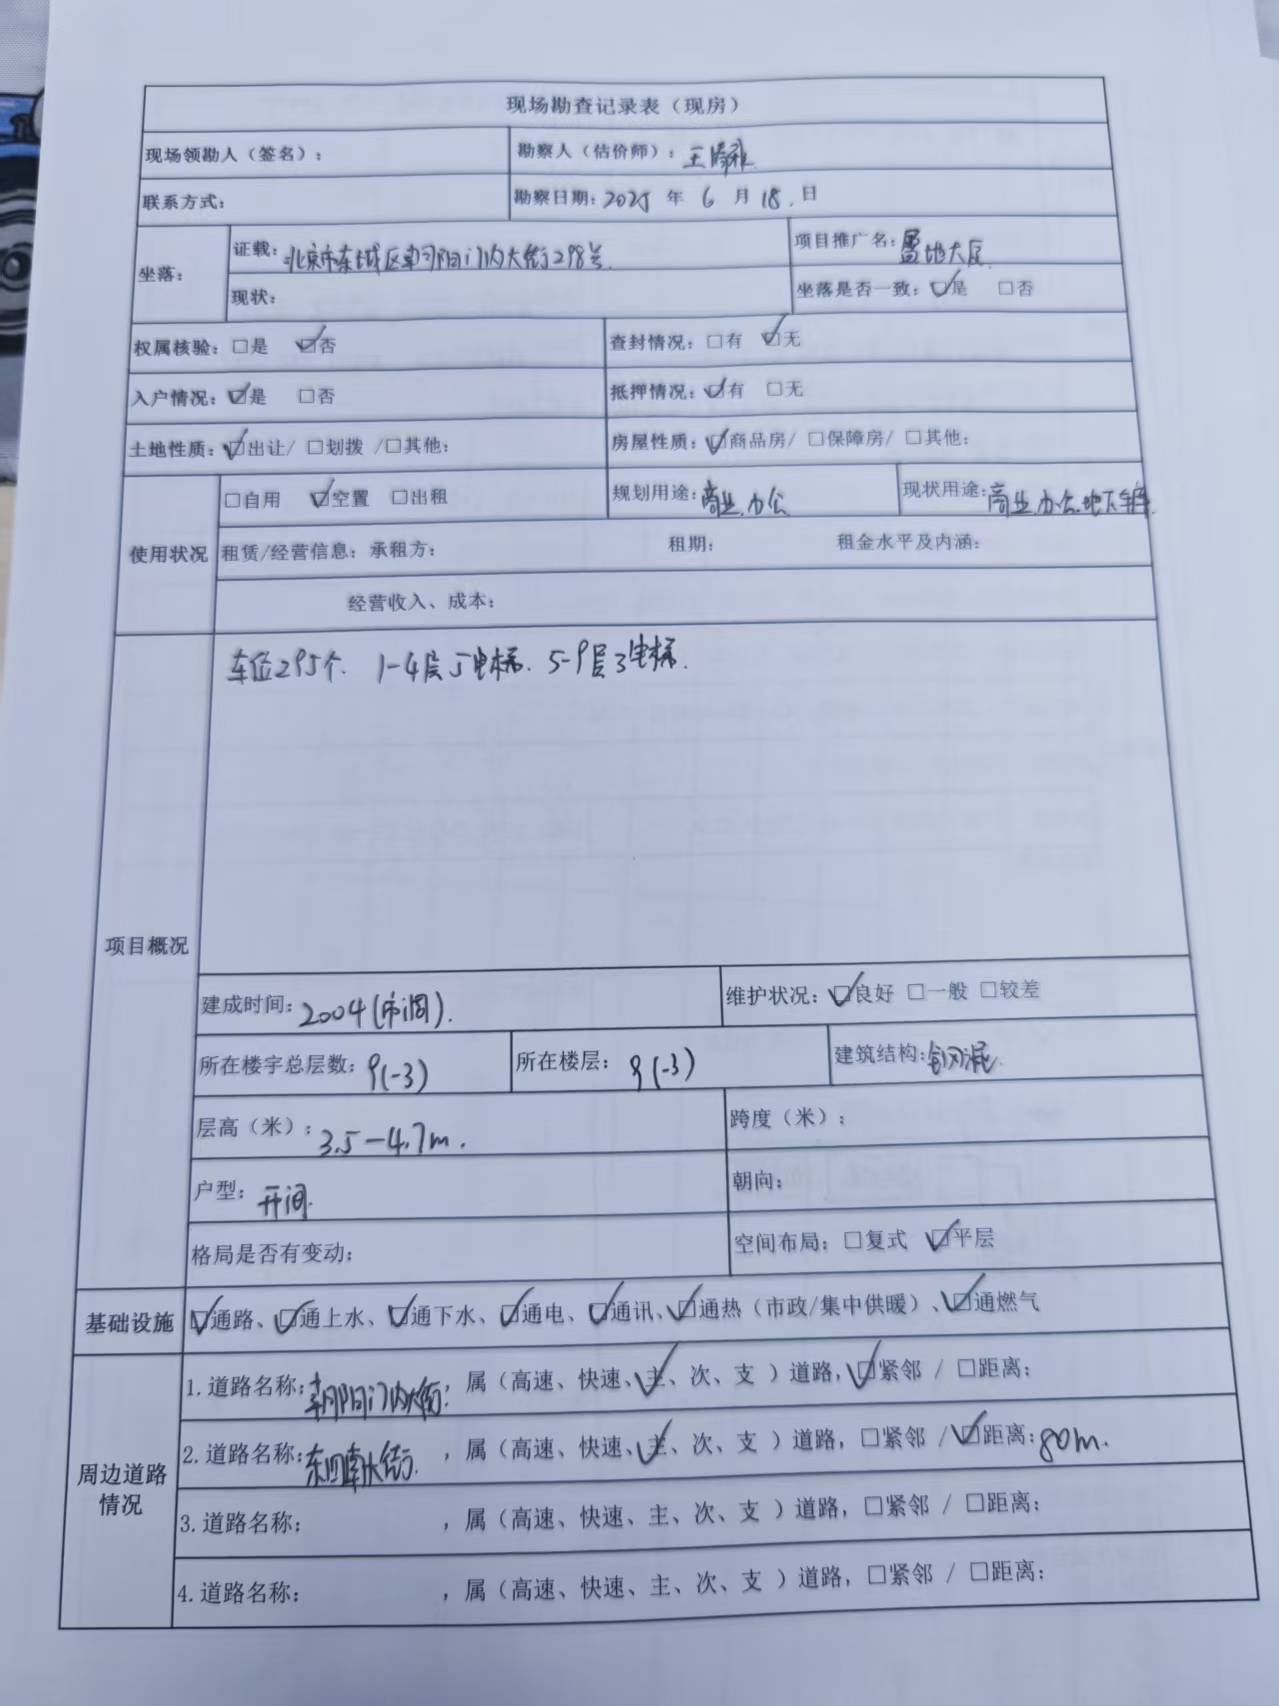 现场勘查记录表（现房）
现场领勘人（签名）： 勘察人（估价师）：王
联系方式： 勘察日期：2025 年 6 月 18 日
坐落： 证载：北京市东城区朝阳门内大街298号 项目推广名：置地大厦
现状： 坐落是否一致：☑是 □否
权属核验：□是 ☑否 查封情况：□有 ☑无
入户情况：☑是 □否 抵押情况：☑有 □无
土地性质：☑出让/ □划拨 /□其他： 房屋性质：☑商品房/ □保障房/ □其他：
使用状况 □自用 ☑空置 □出租 规划用途：商业、办公 现状用途：商业、办公、地下车库
租赁/经营信息：承租方： 租期： 租金水平及内涵：
经营收入、成本：
项目概况 车位295个、 1-4层5电梯、5-9层3电梯.
建成时间：2004(市调). 维护状况：☑良好 □一般 □较差
所在楼宇总层数：9(-3) 所在楼层：9(-3) 建筑结构：钢混
层高（米）：3.5-4.7m. 跨度（米）：
户型：开间. 朝向：
格局是否有变动： 空间布局：□复式 ☑平层
基础设施 ☑通路、☑通上水、☑通下水、☑通电、☑通讯、☑通热（市政/集中供暖）、☑通燃气
周边道路情况 1.道路名称：朝阳门内大街，属（高速、快速、主✓、次、支 ）道路，☑紧邻 / □距离：
2.道路名称：东四南大街 ，属（高速、快速、主✓、次、支 ）道路，□紧邻 / ☑距离：80m.
3.道路名称： ，属（高速、快速、主、次、支 ）道路，□紧邻 / □距离：
4.道路名称： ，属（高速、快速、主、次、支 ）道路，□紧邻 / □距离：